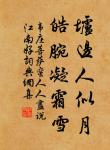 壚邊人似月
皓腕凝霜雪
韋莊菩薩蠻人人盡說
江南好詞典網集